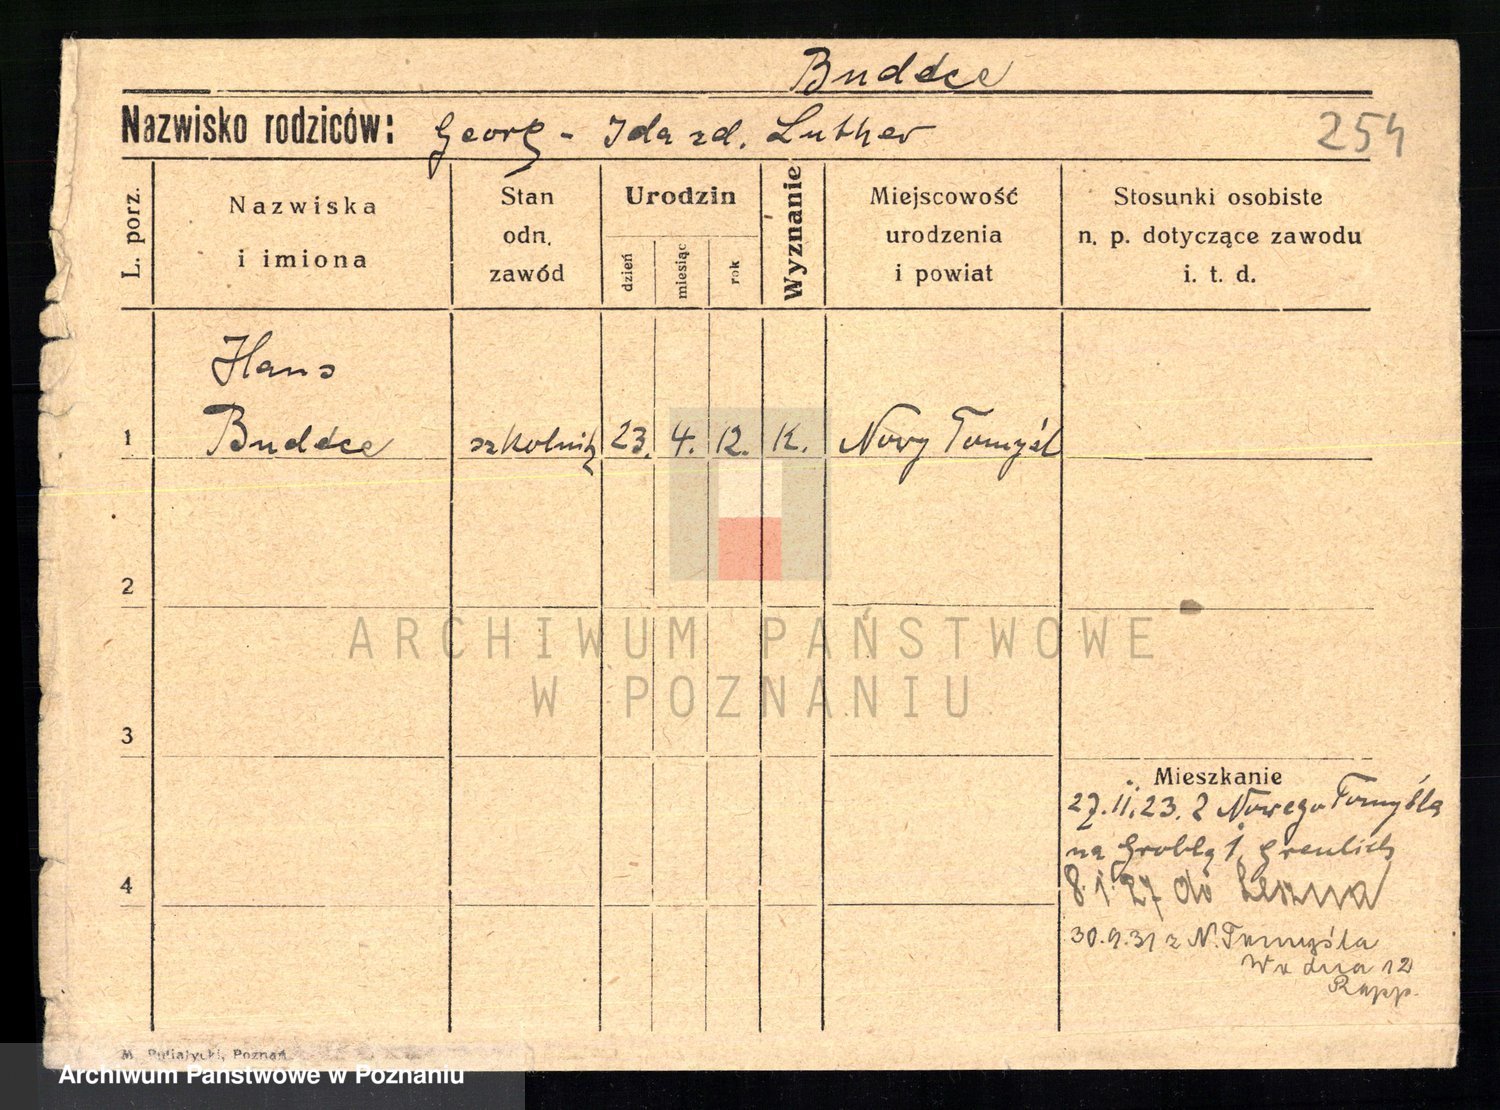 Buddee
Nazwisko rodziców: Georg - Ida zd. Luther 254
L. porz.
Nazwiska
i imiona
Stan
odn.
zawód
Urodzin
dzień
miesiąc
rok
Wyznanie
Miejscowość
urodzenia
i powiat
Stosunki osobiste
n. p. dotyczące zawodu
i. t. d.
Hans
1 Buddee szkolnik 23. 4. 12. K. Nowy Tomyśl
2
ARCHIWUM PAŃSTWOWE
W POZNANIU
3
Mieszkanie
27.11.23. z Nowego Tomyśla
na Groblą 1, Greulich
4
8.1.27 do Leszna
30.9.31 z N. Tomyśla
12
Rapp.
M. Putiatycki, Poznań.
Archiwum Państwowe w Poznaniu